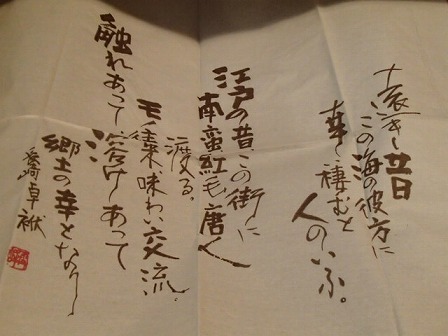 遠き昔
この海の彼方に
幸棲むと
人のいふ。
江戸の昔、この街に
南蛮紅毛、唐人
渡る、
モノ往来味わい交流、
触れあって溶けあって
郷土の幸となりし
長崎卓袱